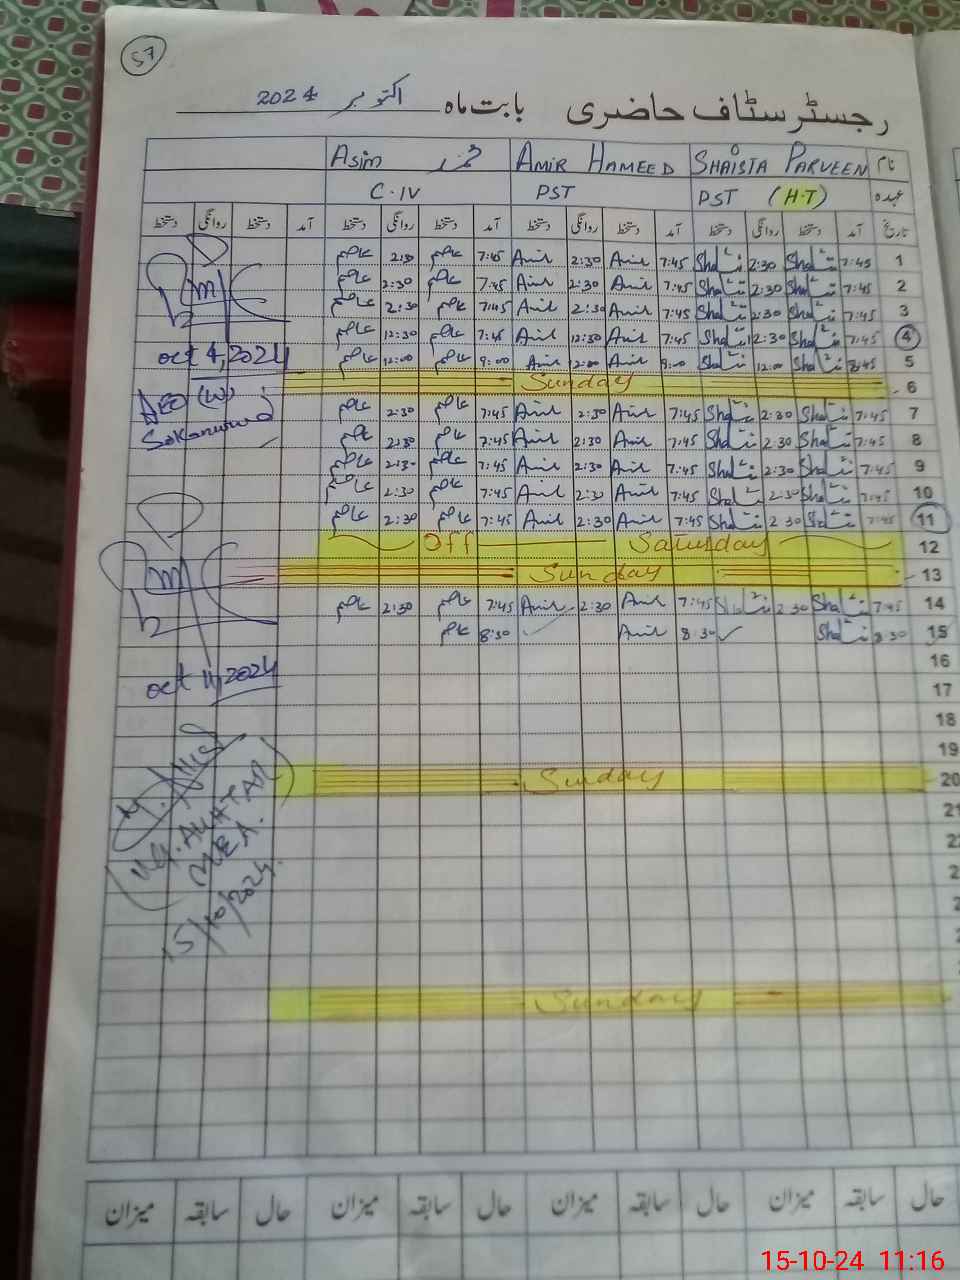 57
رجسٹر سٹاف حاضری بابت ماہ اکتوبر 2024
نام SHAISTA PARVEEN AMIR HAMEED Asim محمد
عہدہ PST (H-T) PST C-IV
تاریخ آمد دستخط روانگی دستخط آمد دستخط روانگی دستخط آمد دستخط روانگی دستخط آمد دستخط روانگی دستخط
1 7:45 2:30 7:45 Amir 2:30 Amir 7:45 عاصم 2:30 عاصم
2 7:45 2:30 7:45 Amir 2:30 Amir 7:45 عاصم 2:30 عاصم
3 7:45 2:30 7:45 Amir 2:30 Amir 7:45 عاصم 2:30 عاصم
4 7:45 12:30 7:45 Amir 12:30 Amir 7:45 عاصم 12:30 عاصم
5 8:45 12:00 9:00 Amir 12:00 Amir 9:00 عاصم 12:00 عاصم
6 Sunday
7 7:45 2:30 7:45 Amir 2:30 Amir 7:45 عاصم 2:30 عاصم
8 7:45 2:30 7:45 Amir 2:30 Amir 7:45 عاصم 2:30 عاصم
9 7:45 2:30 7:45 Amir 2:30 Amir 7:45 عاصم 2:30 عاصم
10 7:45 2:30 7:45 Amir 2:30 Amir 7:45 عاصم 2:30 عاصم
11 7:45 2:30 7:45 Amir 2:30 Amir 7:45 عاصم 2:30 عاصم
12 Off Saturday
13 Sunday
14 7:45 2:30 7:45 Amir 2:30 Amir 7:45 عاصم 2:30 عاصم
15 8:30 8:30 Amir 8:30 عاصم
16
17
18
19
20 Sunday
21
Sunday
oct 4, 2024
DEO (W)
oct 11, 2024
MEA.
15/10/2024
حال سابقہ میزان حال سابقہ میزان حال سابقہ میزان حال سابقہ میزان
15-10-24 11:16